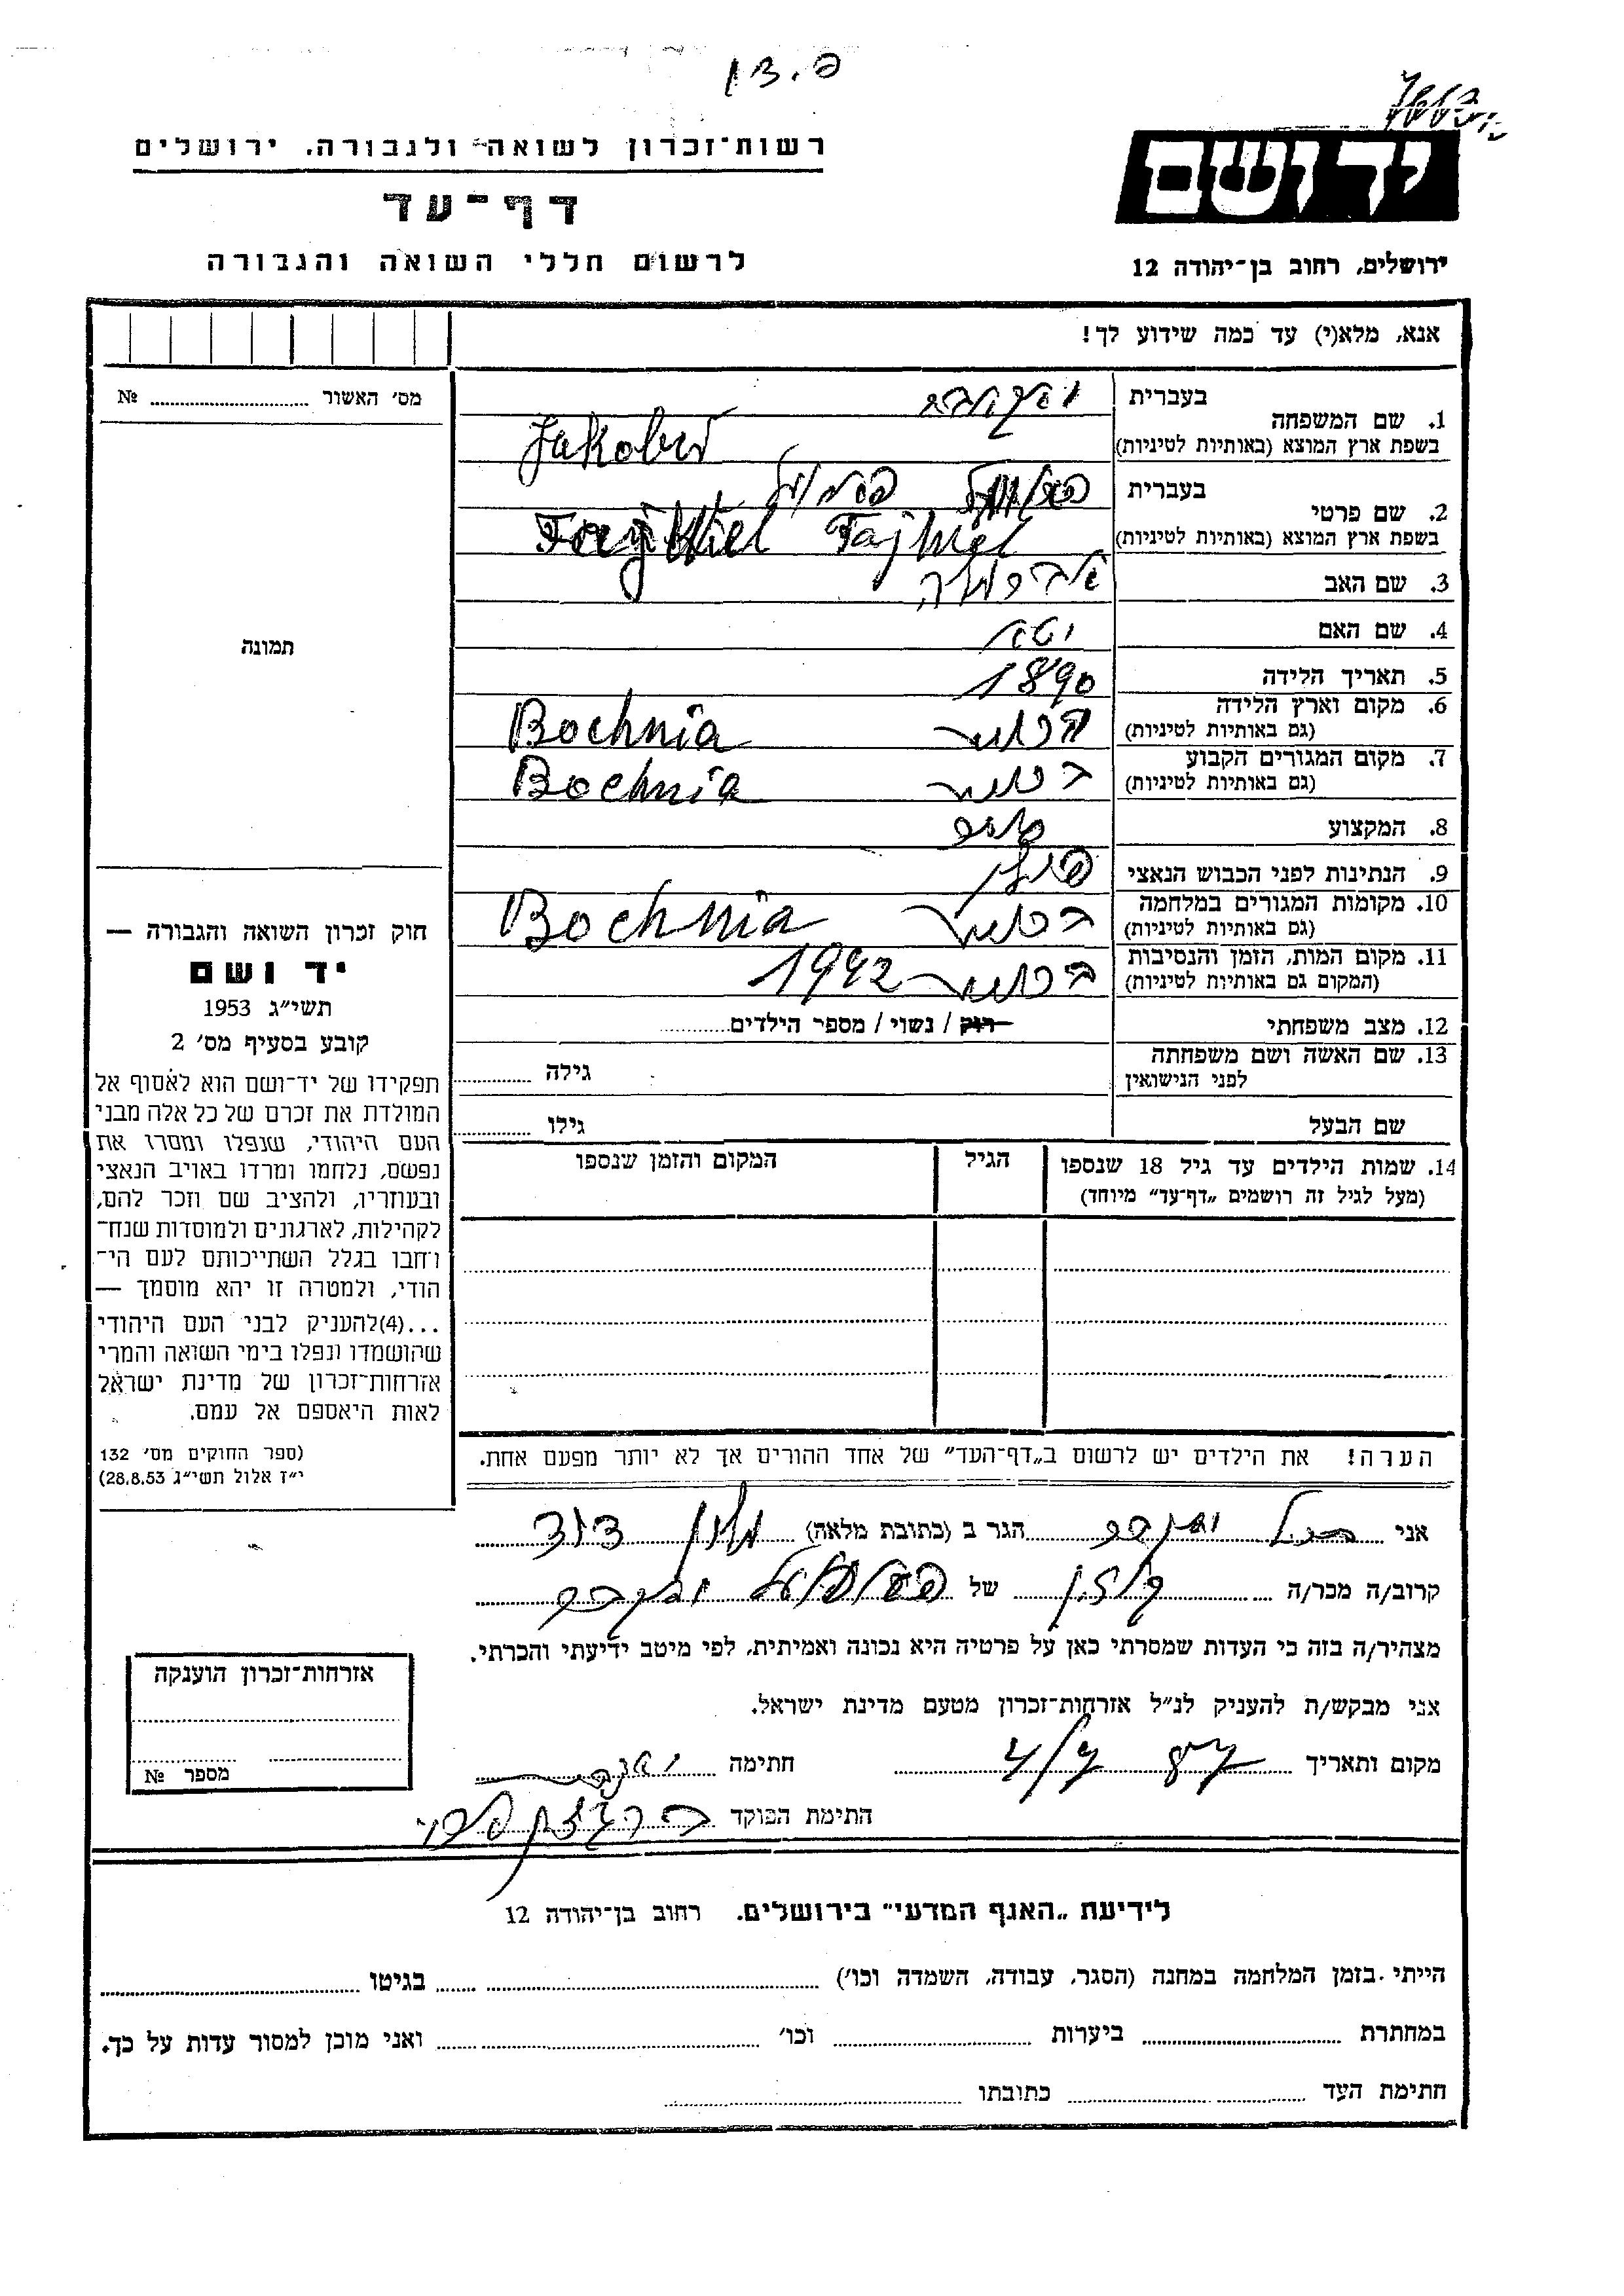 רשות־זכרון לשואה ולגבורה, ירושלים
דף־עד
לרשום חללי השואה והגבורה
יד ושם
ירושלים, רחוב בן־יהודה 12
אנא, מלא(י) עד כמה שידוע לך!
מס׳ האשור № ........
1. שם המשפחה
בעברית
בשפת ארץ המוצא (באותיות לטיניות) Jakober
2. שם פרטי
בעברית
בשפת ארץ המוצא (באותיות לטיניות)
3. שם האב
4. שם האם יטא
5. תאריך הלידה 1890
6. מקום וארץ הלידה
(גם באותיות לטיניות) Bochnia
7. מקום המגורים הקבוע
(גם באותיות לטיניות) Bochnia
8. המקצוע
9. הנתינות לפני הכבוש הנאצי פולין
10. מקומות המגורים במלחמה
(גם באותיות לטיניות) Bochnia
11. מקום המות, הזמן והנסיבות
(המקום גם באותיות לטיניות) 1942
12. מצב משפחתי רווק / נשוי / מספר הילדים........
13. שם האשה ושם משפחתה
לפני הנישואין גילה ........
שם הבעל גילו ........
14. שמות הילדים עד גיל 18 שנספו
(מעל לגיל זה רושמים „דף־עד" מיוחד)
הגיל
המקום והזמן שנספו
הערה! את הילדים יש לרשום ב„דף־העד" של אחד ההורים אך לא יותר מפעם אחת.
תמונה
חוק זכרון השואה והגבורה —
יד ושם
תשי״ג 1953
קובע בסעיף מס׳ 2
תפקידו של יד־ושם הוא לאסוף אל
המולדת את זכרם של כל אלה מבני
העם היהודי, שנפלו ומסרו את
נפשם, נלחמו ומרדו באויב הנאצי
ובעוזריו, ולהציב שם וזכר להם,
לקהילות, לארגונים ולמוסדות שנח־
רבו בגלל השתייכותם לעם הי־
הודי, ולמטרה זו יהא מוסמך —
...(4)להעניק לבני העם היהודי
שהושמדו ונפלו בימי השואה והמרי
אזרחות־זכרון של מדינת ישראל
לאות היאספם אל עמם.
(ספר החוקים מס׳ 132
י״ז אלול תשי״ג 28.8.53)
אני ........ הגר ב (כתובת מלאה) ........
קרוב/ה מכר/ה ........ של ........
מצהיר/ה בזה כי העדות שמסרתי כאן על פרטיה היא נכונה ואמיתית, לפי מיטב ידיעתי והכרתי.
אני מבקש/ת להעניק לנ״ל אזרחות־זכרון מטעם מדינת ישראל.
מקום ותאריך ........ חתימה ........
חתימת הפוקד ........
אזרחות־זכרון הוענקה
מספר №
לידיעת „האגף המדעי" בירושלים. רחוב בן־יהודה 12
הייתי בזמן המלחמה במחנה (הסגר, עבודה, השמדה וכו׳) ........ בגיטו ........
במחתרת ........ ביערות ........ וכו׳ ........ ואני מוכן למסור עדות על כך.
חתימת העד ........ כתובתו ........